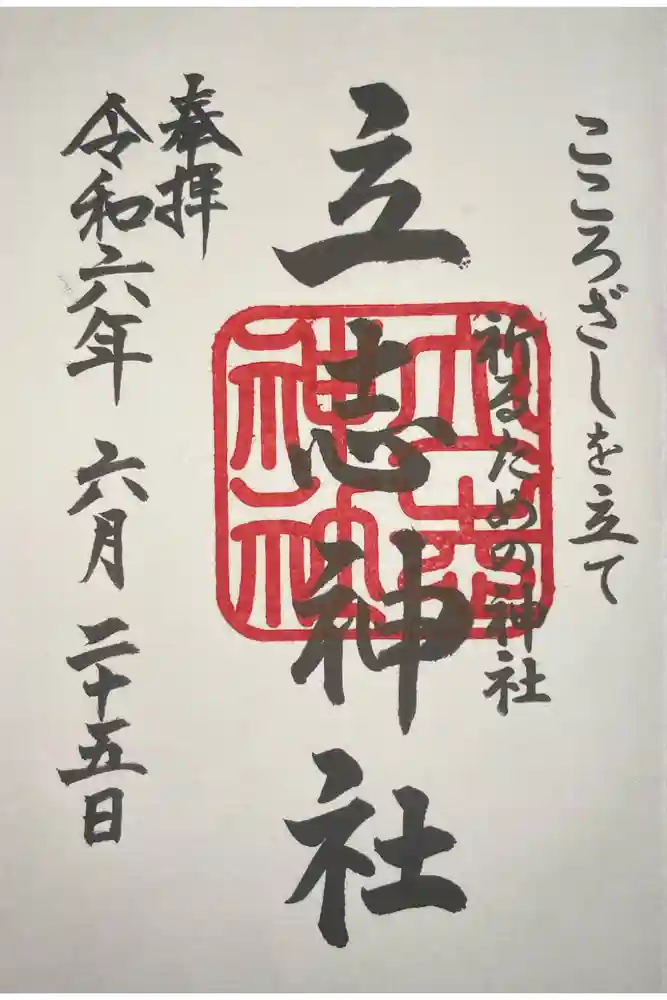 こころざしを立て
祈るための神社
立志神社
立志
神社
奉拝
令和六年 六月 二十五日